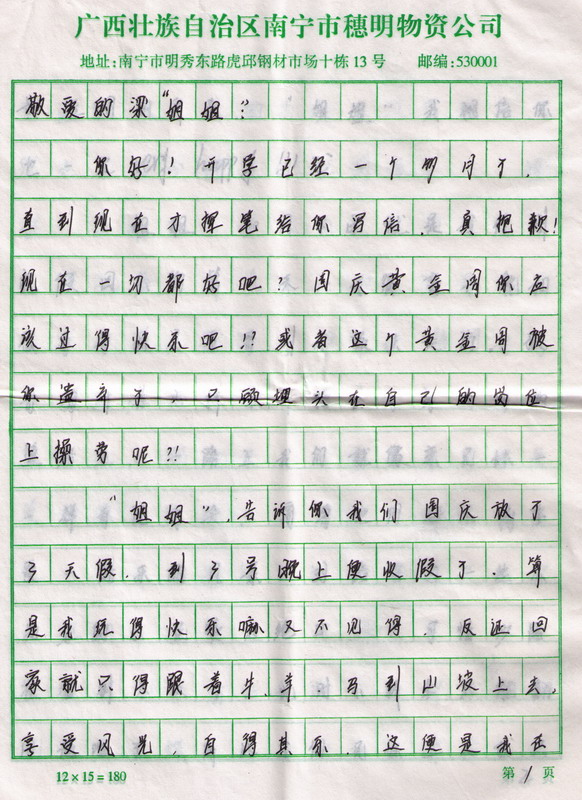 广西壮族自治区南宁市穗明物资公司
地址:南宁市明秀东路虎邱钢材市场十栋13号 邮编:530001
敬爱的梁“姐姐”:
你好!开学已经一个多月了,
直到现在才挥笔给你写信,真抱歉!
现在一切都好吧?国庆黄金周你应
该过得快乐吧!?或者这个黄金周被
你遗弃了,只顾埋头在自己的岗位
上操劳呢?!
“姐姐”,告诉你我们国庆放了
3天假,到3号晚上便收假了.算
是我玩得快乐嘛又不见得,反正回
家就只得跟着牛、羊、马到山坡上去,
享受风光,自得其乐.这便是我在
12×15=180
第1页